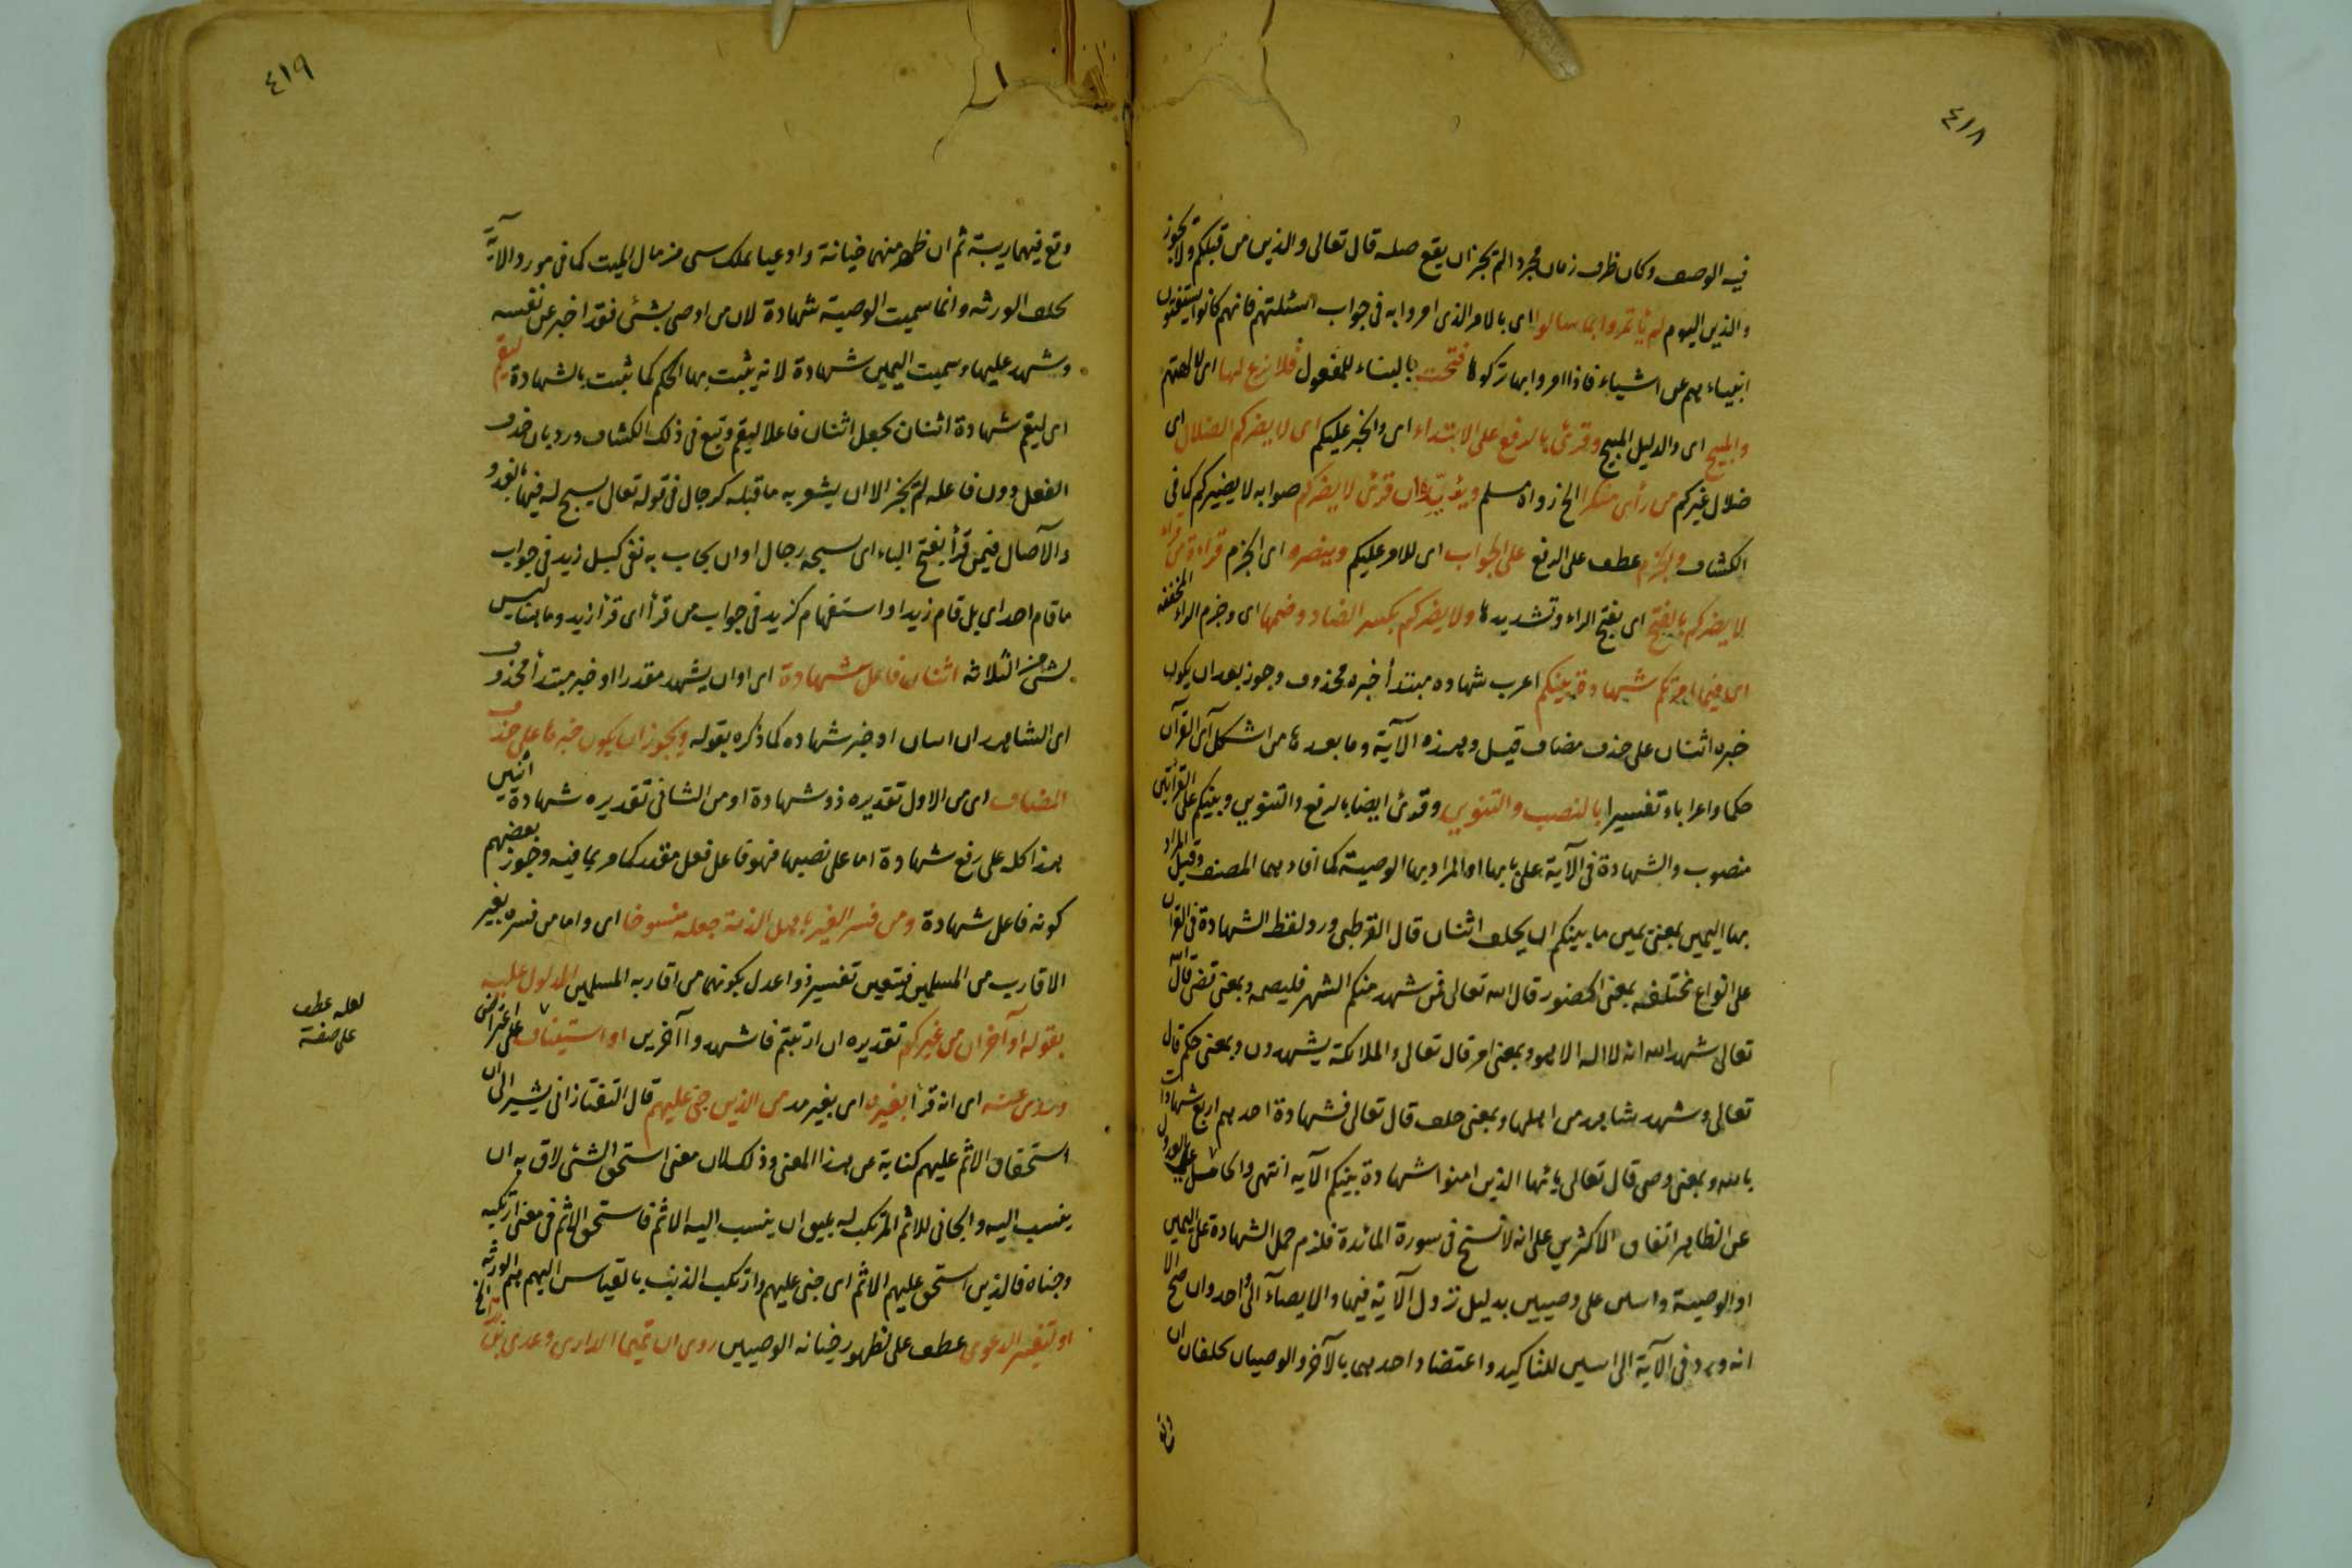 ٤١٨
فيه الوصف وكان ظرف زمان مجردا لم يجز ان يقع صله قال تعالى والذين من قبلكم ولا يجوز
والذين اليوم لم يأتمروا بما سالوا اى بالامر الذى امروا به فى جواب اسئلتهم فانهم كانوا يستفتون
انبياءهم عن اشياء فاذا امروا بها تركوها فتحت بالبناء للمفعول فلا نزع لها اى لالهتهم
والمبيح اى والدليل المبيح وقرئ بالرفع على الابتداء اى والخبر عليكم اى لا يضركم الضلال اى
ضلال غيركم من رأى منكرا الخ رواه مسلم ويؤيده ان قرئ لا يضركم صوابه لا يضيركم كما فى
الكشاف والجزم عطف على الرفع على الجواب اى للامر عليكم وينصره اى الجزم قراءة من قراء
لا يضركم بالفتح اى بفتح الراء وتشديدها ولا يضركم بكسر الضاد وضمها اى وجزم الراء المخففه
اى فيما امرتكم شهادة بينكم اعرب شهاده مبتدأ خبره محذوف وجوز بعد ان يكون
خبره اثنان على حذف مضاف قيل وهذه الآية وما بعدها من اشكل آى القرآن
حكما واعرابا وتفسيرا بالنصب والتنوين وقرئ ايضا بالرفع والتنوين وبينكم على القرأتين
منصوب والشهادة فى الآية على بابها او المراد بها الوصية كما افادهما المصنف وقيل المراد
بها اليمين بمعنى يمين ما بينكم ان يحلف اثنان قال القرطبى ورد لفظ الشهادة فى القرآن
على انواع مختلفه بمعنى الحضور قال الله تعالى فمن شهد منكم الشهر فليصمه وبمعنى قضى قال الله
تعالى شهد الله انه لا اله الا هو وبمعنى امر قال تعالى والملائكة يشهدون وبمعنى حكم قال
تعالى وشهد شاهد من اهلها وبمعنى حلف قال تعالى فشهادة احدهم اربع شهادات
بالله وبمعنى وصى قال تعالى يا ئها الذين امنوا شهادة بينكم الآيه انتهى والحامل على العدول
عن الظاهر اتفاق الاكثرين على انه لا نسخ فى سورة المائدة فلزم حمل الشهادة على اليمين
او الوصية واسس على وصيين بدليل نزول الآية فيهما والايصاء الى واحد وان صح الا
انه ورد فى الآية الى اسس للتاكيد واعتضاد احدهما بالآخر والوصيان يحلفان ان
٤١٩
وقع فيهما ريبة ثم ان ظهر منهما خيانة وادعيا ملك سى من مال الميت كما فى مورد الآية
يحلف الورثه وانما سميت الوصية شهادة لان من اوصى بشئ فقد اخبر عن نفسه
وشهد عليها وسميت اليمين شهادة لانه يثبت بها الحكم كما ثبت بالشهادة ليقم
اى ليقم شهادة اثنان بجعل اثنان فاعلا ليقم وتبع فى ذلك الكشاف ورد بان حذف
الفعل دون فاعله لم يجز الا ان يشعر به ما قبله كرجال فى قوله تعالى يسبح له فيها بالغدو
والآصال فيمن قرأ بفتح الباء اى يسبحه رجال او ان يجاب به نفى كبل زيد فى جواب
ما قام احد اى بل قام زيد او استفهام كزيد فى جواب من قرأ اى قرأ زيد وما هنا ليس
بشئ من الثلاثه اثنان فاعل شهادة اى او ان يشهد مقدرا او خبر مبتدأ محذوف
اى الشاهدان اسان او خبر شهاده كما ذكره بقوله ويجوز ان يكون خبرها على حذف
المضاف اى من الاول تقديره ذو شهادة او من الثانى تقديره شهادة اثنين
هذا كله على رفع شهادة اما على نصبها فهو فاعل فعل مقدر كما مر بما فيه وجوز بعضهم
كونه فاعل شهادة ومن فسر الغير باهل الذمة جعله منسوخا اى واما من فسره بغير
الاقارب من المسلمين فيتعين تفسير ذوا عدل بكونهما من اقاربه المسلمين المدلول عليه
بقوله او آخران من غيركم تقديره ان ارتبتم فاشهدوا آخرين او استيناف على اعتراض
وروى عنه اى انه قرأ بغيره اى بغير مد من الذين جنى عليهم قال التفتازانى يشير الى ان
استحقاق الاثم عليهم كناية عن هذا المعنى وذلك لان معنى استحق الشئ لاق به ان
ينسب اليه والجانى للاثم المرتكب له يليق ان ينسب اليه الاثم فاستحق الاثم فى معنى ارتكبه
وجناه فالذين استحق عليهم الاثم اى جنى عليهم وارتكب الذنب بالقياس اليهم هم الورثه
او لتغير الدعوى عطف على لظهور خيانه الوصيين روى ان تميما الدارى وعدى بن
لعله عطف
على صفة